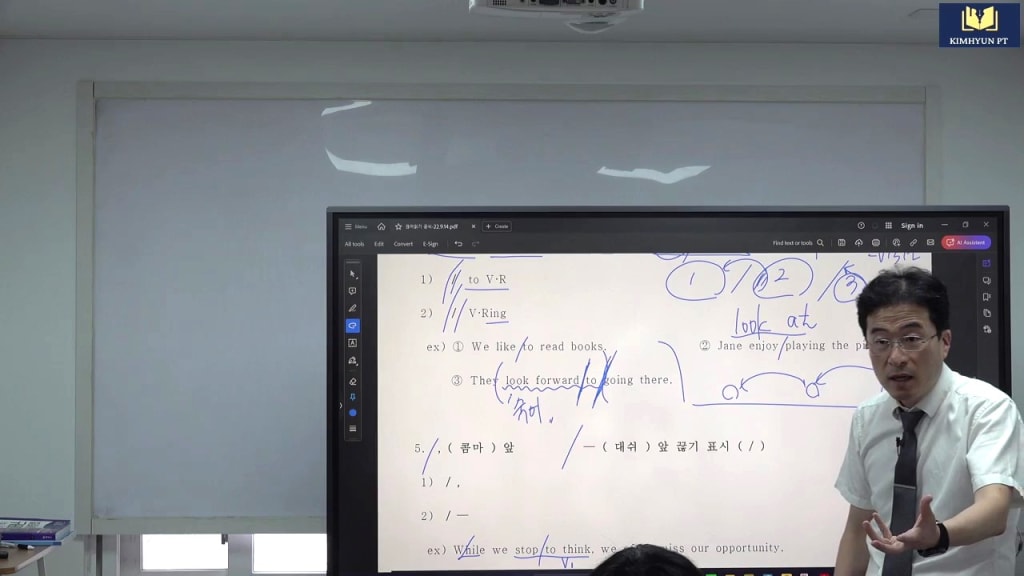 KIMHYUN PT
Menu
22.9.14.pdf
Create
Sign in
All tools Edit Convert E-Sign
Find text or tools
AI Assistant
1) to V·R
1 2 3
2) V·Ring
look at
ex) ① We like to read books. ② Jane enjoy playing the
③ They look forward to going there.
숙어.
5. , ( 콤마 ) 앞 ─ ( 대쉬 ) 앞 끊기 표시 ( / )
1) / ,
2) / ─
ex) While we stop to think, we miss our opportunity.
V₁